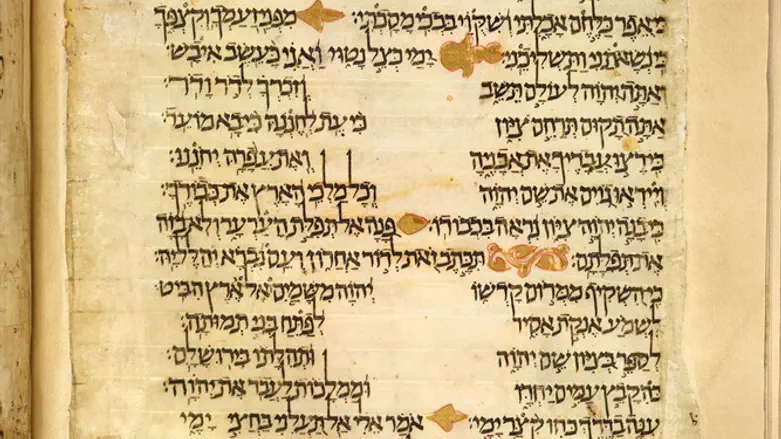 כי אפר כלחם אכלתי ושקוי בבכי מסכתי׃ מפני זעמך וקצפך
כי נשאתני ותשליכני׃ ימי כצל נטוי ואני כעשב איבש׃
ואתה יהוה לעולם תשב וזכרך לדר ודר׃
אתה תקום תרחם ציון כי עת לחננה כי בא מועד׃
כי רצו עבדיך את אבניה ואת עפרה יחננו׃
וייראו גוים את שם יהוה וכל מלכי הארץ את כבודך׃
כי בנה יהוה ציון נראה בכבודו׃ פנה אל תפלת הערער ולא בזה
את תפלתם׃ תכתב זאת לדור אחרון ועם נברא יהלל יה׃
כי השקיף ממרום קדשו יהוה משמים אל ארץ הביט׃
לשמע אנקת אסיר לפתח בני תמותה׃
לספר בציון שם יהוה ותהלתו בירושלם׃
בהקבץ עמים יחדו וממלכות לעבד את יהוה׃
ענה בדרך כחו קצר ימי׃ אמר אלי אל תעלני בחצי ימי